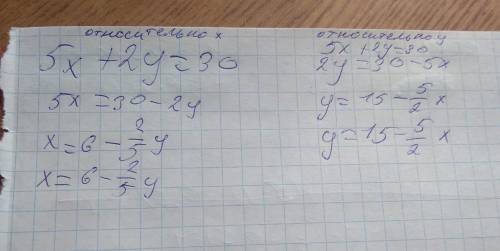 относительно x
5x + 2y = 30
5x = 30 - 2y
x = 6 - 2/5 y
x = 6 - 2/5 y
относительно y
5x + 2y = 30
2y = 30 - 5x
y = 15 - 5/2 x
y = 15 - 5/2 x